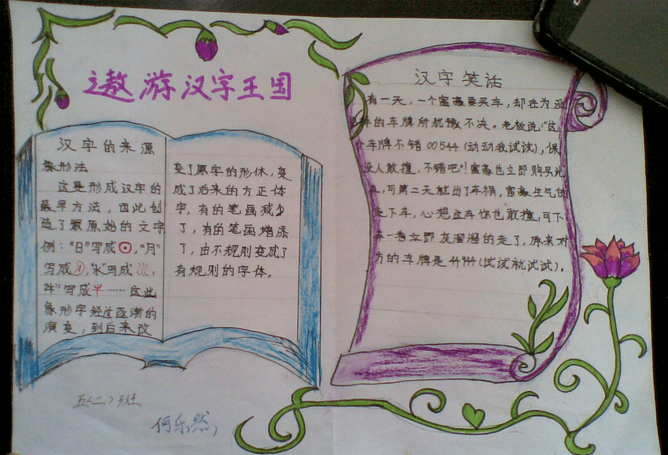 遨游汉字王国
汉字的来源
象形法
这是形成汉字的
最早方法，因此创
造了最原始的文字
例："日"写成 ，"月"
写成 ，"水"写成 ，
"牛"写成 ……这些
象形字经过逐渐的
演变，到后来改
变了原字的形体，变
成了后来的方正体
字，有的笔画减少
了，有的笔画增添
了，由不规则变成了
有规则的字体。
汉字笑话
有一天，一个富豪要买车，却在为
车的车牌所犹豫不决。老板说："这
车牌不错00544(动动我试试)，保
没人敢撞，不错吧！富豪也立即购买
，可第二天就出了车祸，富豪生气的
走下车，心想这车你也敢撞，可下
一看立即灰溜溜的走了，原来对
方的车牌是44944(试试就试试)。
五〈二〉班
何乐然